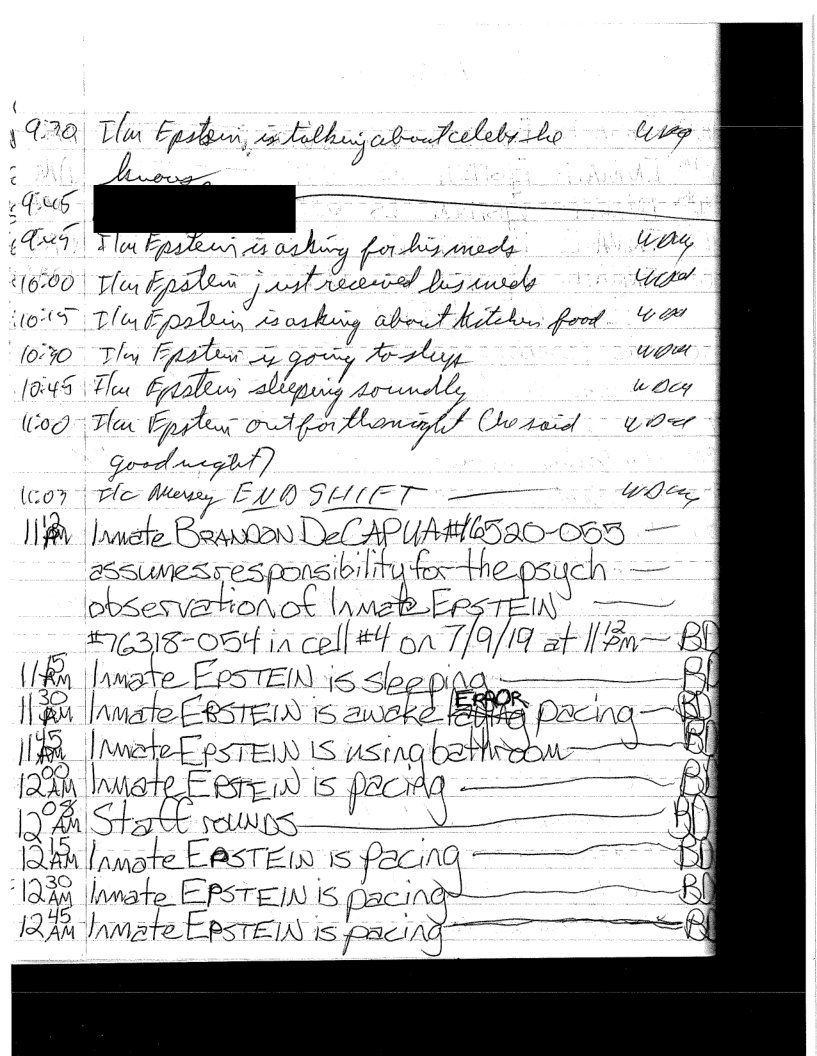 9:30 I/m Epstein, is talking about celebs he
knows.
9:45
9:45 I/m Epstein is asking for his meds
10:00 I/m Epstein just received his meds
10:15 I/m Epstein is asking about kitchen food
10:30 I/m Epstein is going to sleep
10:45 I/m Epstein sleeping soundly
11:00 I/m Epstein out for the night (he said
good night)
11:03 I/c END SHIFT
11 12 PM Inmate BRANDON DeCAPUA #16520-055
assumes responsibility for the psych
observation of Inmate EPSTEIN
#76318-054 in cell #4 on 7/9/19 at 11 12 PM BD
11 15 PM Inmate EPSTEIN is sleeping BD
11 30 PM Inmate EPSTEIN is awake ERROR pacing BD
11 45 PM Inmate EPSTEIN is using bathroom BD
12 00 AM Inmate EPSTEIN is pacing BD
12 08 AM Staff rounds BD
12 15 AM Inmate EPSTEIN is pacing BD
12 30 AM Inmate EPSTEIN is pacing BD
12 45 AM Inmate EPSTEIN is pacing BD